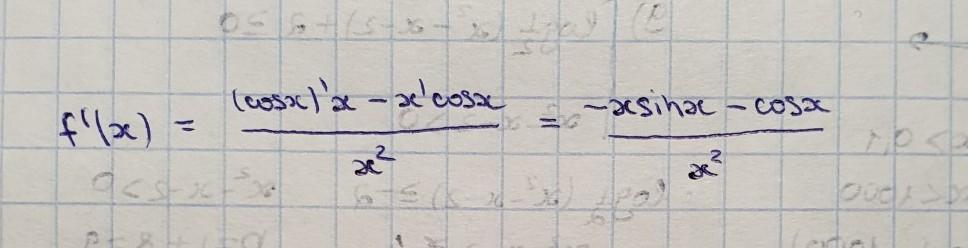 f'(x) = ((cosx)'x - x'cosx)/x² = (-xsinx - cosx)/x²